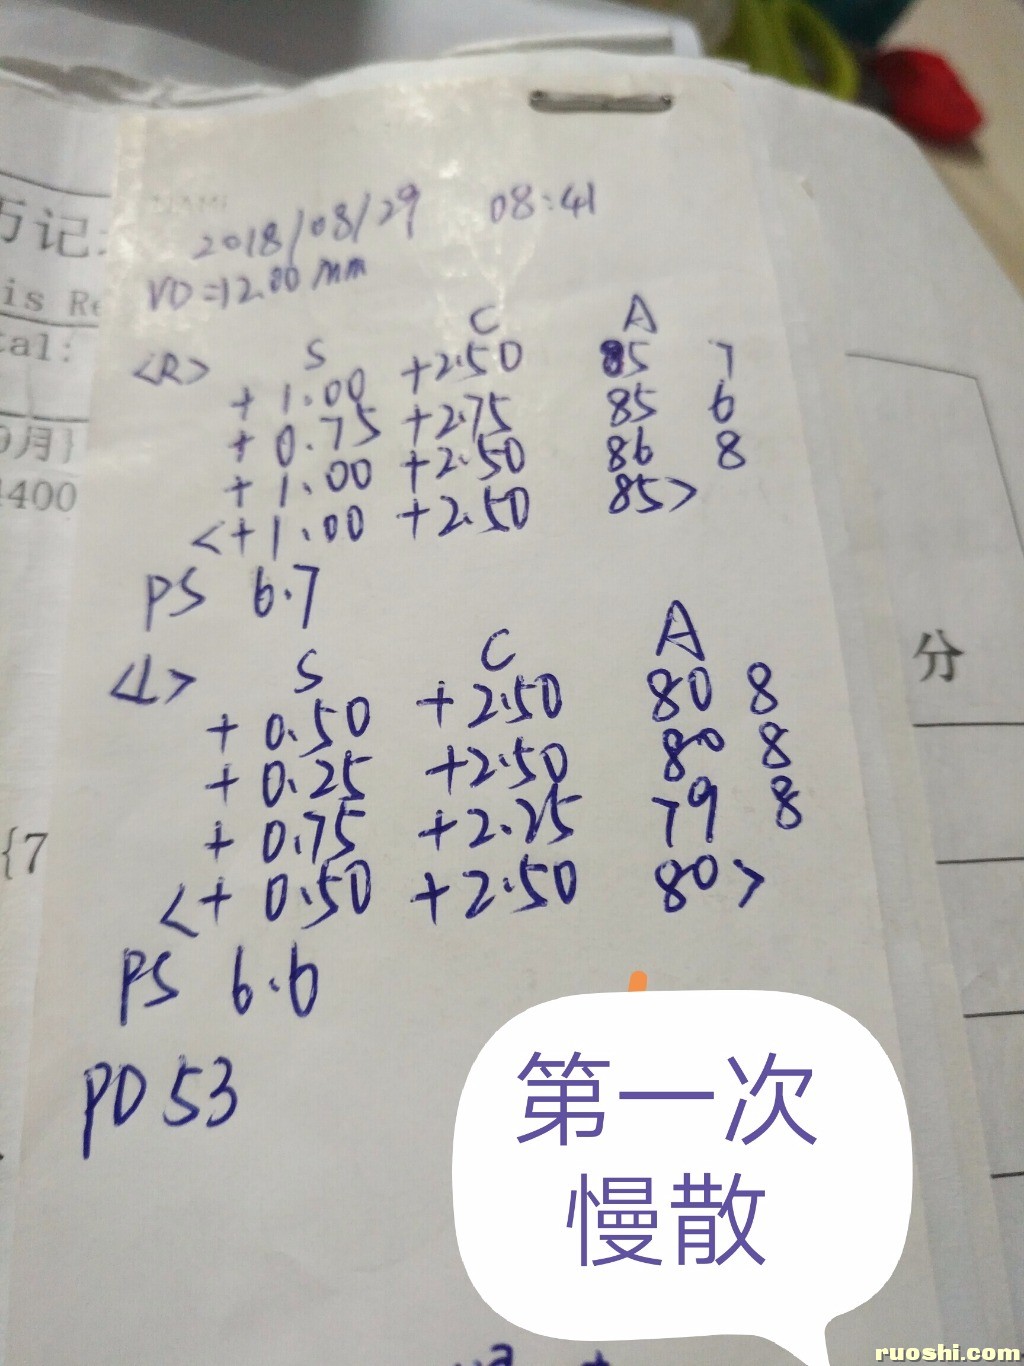 2018/08/29 08:41
VD=12.00 mm
<R> S C A
+1.00 +2.50 85 7
+0.75 +2.75 85 6
+1.00 +2.50 86 8
<+1.00 +2.50 85>
PS 6.7
<L> S C A
+0.50 +2.50 80 8
+0.25 +2.50 80 8
+0.75 +2.25 79 8
<+0.50 +2.50 80>
PS 6.6
PD 53
历记:
is Re
tal:
9月}
400
{7
分
第一次
慢散
ruoshi.com